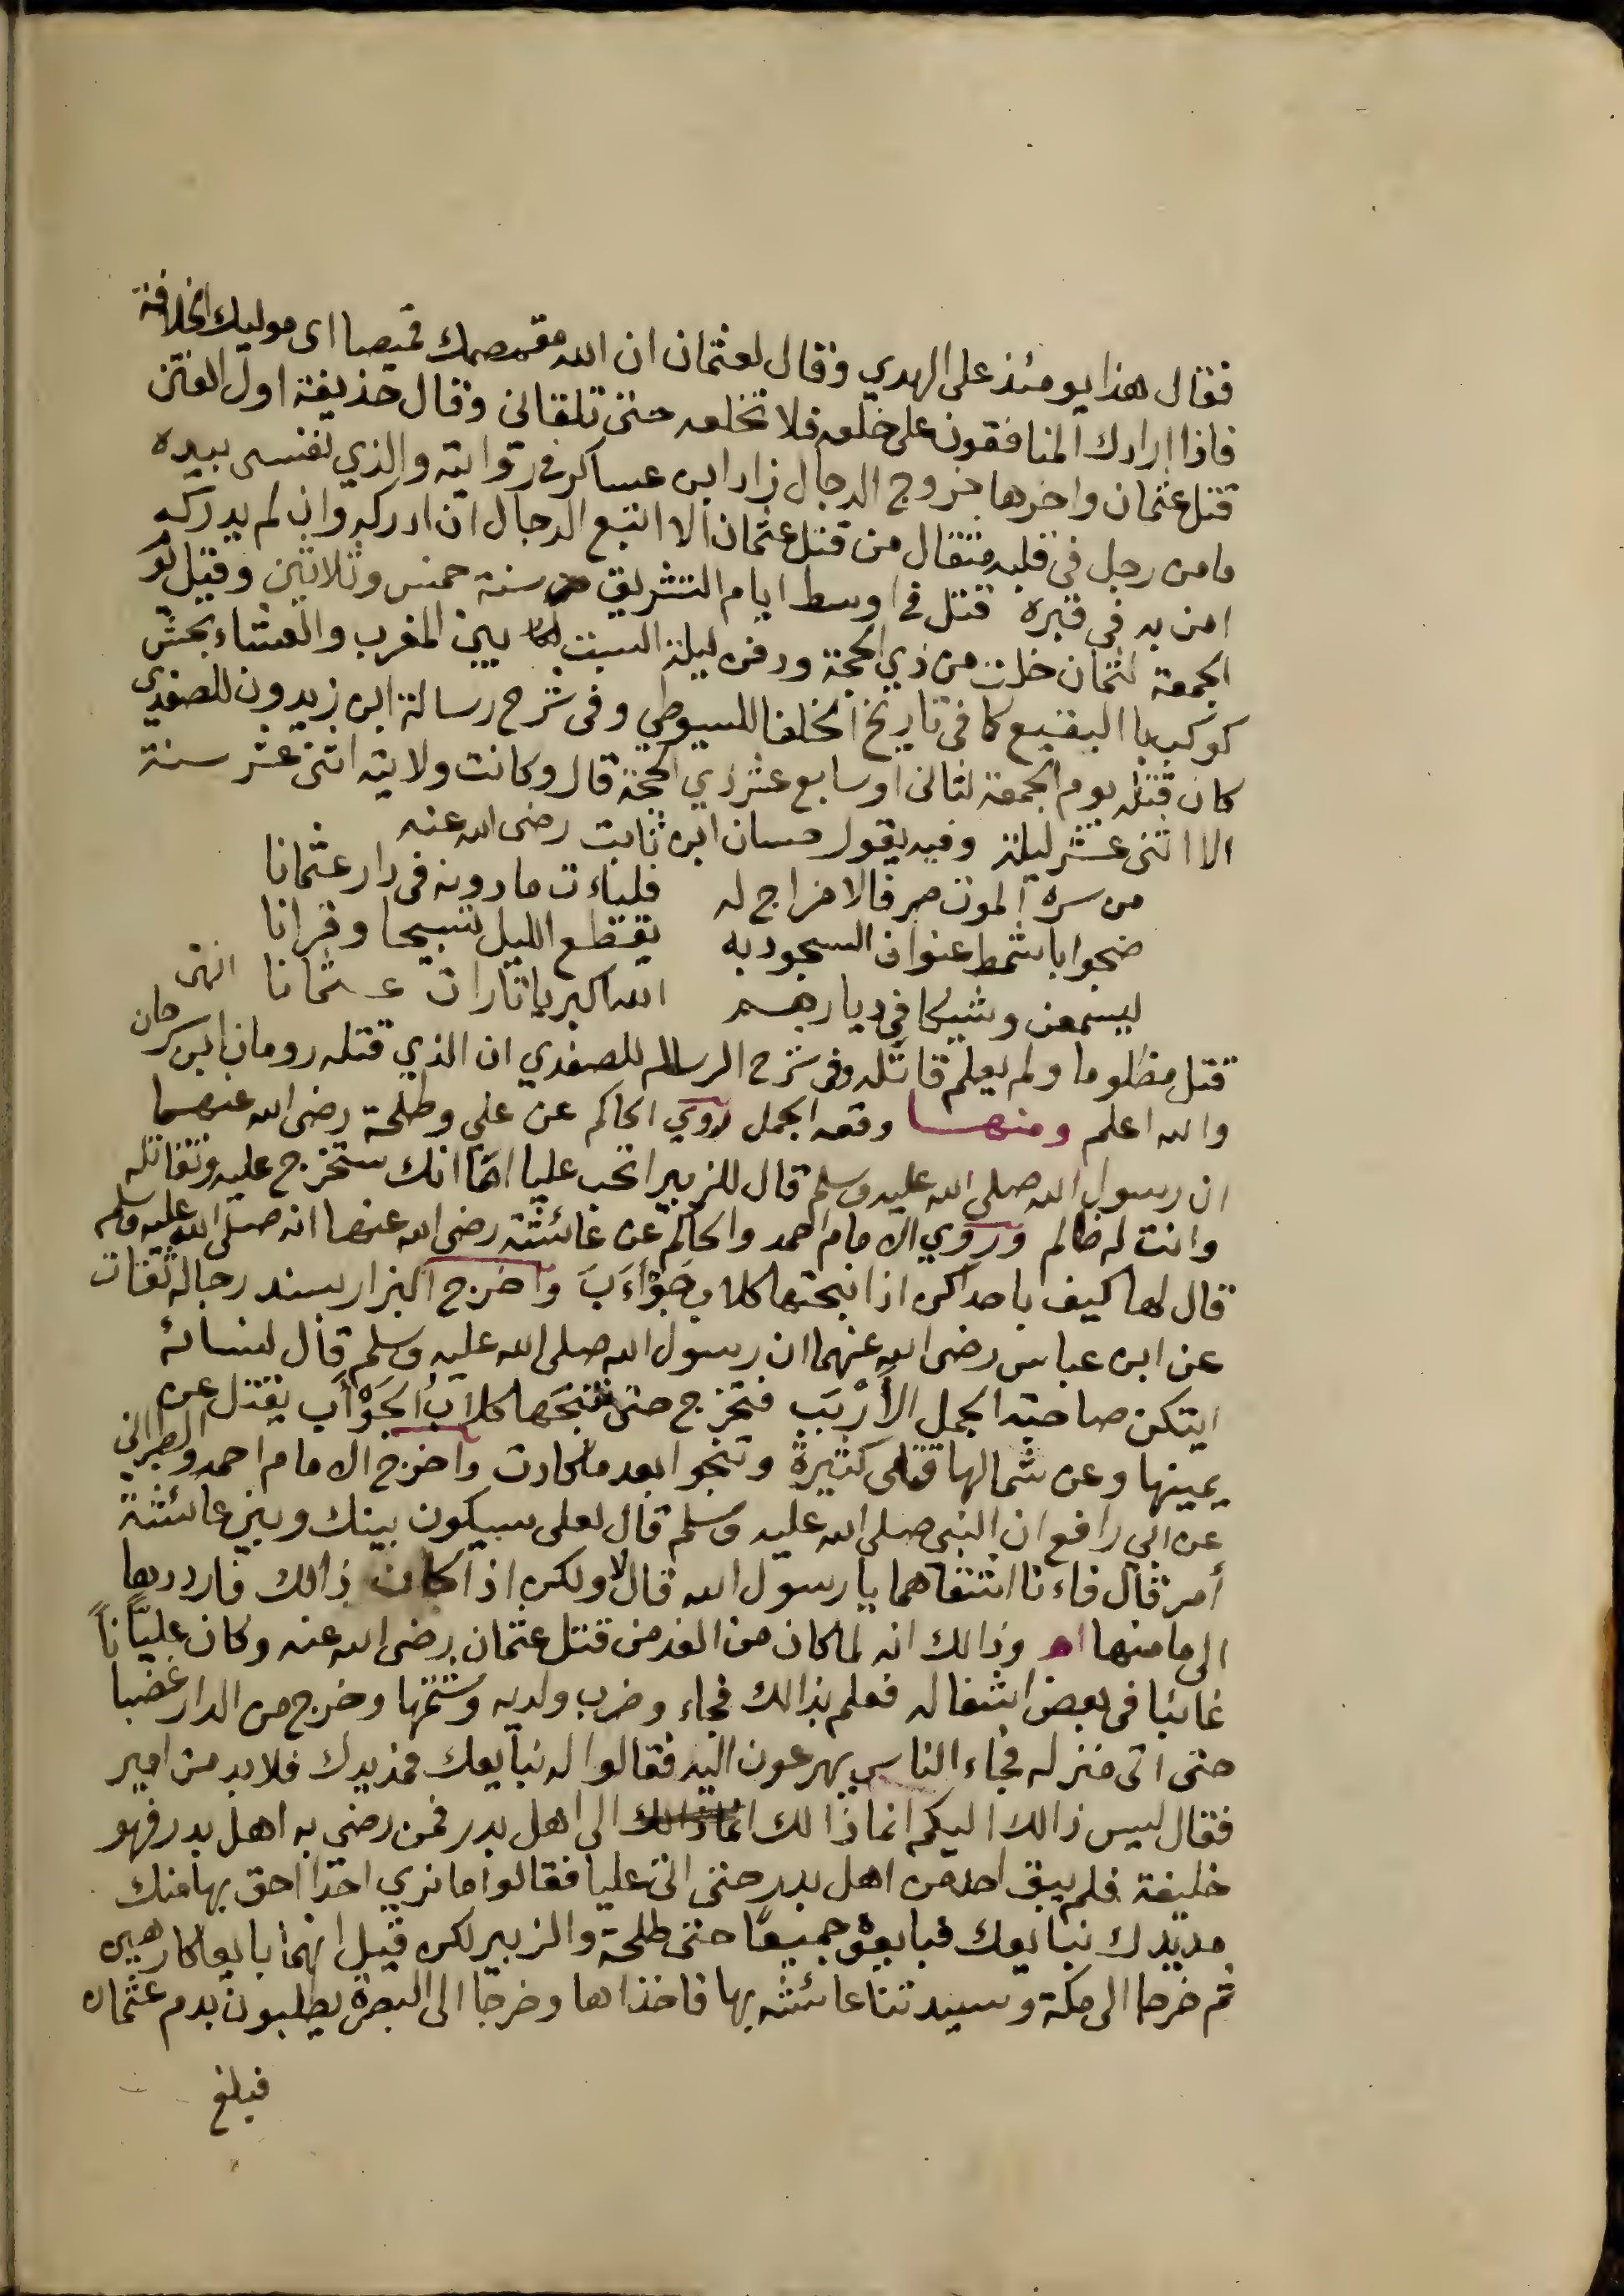 فقال هذا يومئذ على الهدي وقال لعثمان ان الله مقمصك قميصا اى موليك الخلافة
فاذا ارادك المنافقون على خلعه فلا تخلعه حتى تلقانى وقال حذيفة اول الفتن
قتل عثمان واخرها خروج الدجال زاد ابن عساكر فى روايته والذي نفسى بيده
ما من رجل فى قلبه مثقال من قتل عثمان الا اتبع الدجال ان ادركه وان لم يدركه
امن به فى قبره قتل فى اوسط ايام التشريق من سنة خمس وثلاثين وقيل يوم
الجمعة لثمان خلت من ذي الحجة ودفن ليلة السبت بين المغرب والعشاء بحش
كوكب با البقيع كما فى تاريخ الخلفا للسيوطي وفى شرح رسالة ابن زيدون للصفدي
كان قتله يوم الجمعة لثمانى او سابع عشر ذي الحجة قال وكانت ولايته اثنى عشر سنة
الا اثنى عشر ليلة وفيه يقول حسان ابن ثابت رضى الله عنه
من سره الموت صرفا لا مزاج له فلياءت ما دونه فى دار عثمانا
ضحوا باشمط عنوان السجود به يقطع الليل تسبيحا وقرانا
ليسمعن وشيكا في ديارهم الله اكبر يا ثارات عثمانا انتهى
قتل مظلوما ولم يعلم قاتله وفى شرح الرسالة للصفدي ان الذي قتله رومان ابن سرحان
والله اعلم ومنها وقعه الجمل روي الحاكم عن علي وطلحة رضى الله عنهما
ان رسول الله صلى الله عليه وسلم قال للزبير اتحب عليا اما انك ستخرج عليه وتقاتله
وانت له ظالم وروي الامام احمد والحاكم عن عائشة رضى الله عنها انه صلى الله عليه وسلم
قال لها كيف باحداكن اذا نبحتها كلاب حَوْأَبَ واخرج البزار بسند رجاله ثقات
عن ابن عباس رضى الله عنهما ان رسول الله صلى الله عليه وسلم قال لنسائه
ايتكن صاحبة الجمل الأَرْبَبِ فتخرج حتى تنبحَها كلابُ الحَوْأَب يقتل عن
يمينها وعن شمالها قتلى كثيرة وتنجوا بعد ما كادت واخرج الامام احمد والطبرانى
عن ابي رافع ان النبى صلى الله عليه وسلم قال لعلى سيكون بينك وبين عائشة
أمر قال فاءنا اشقاهما يا رسول الله قال لا ولكن اذا كان ذالك فارددها
الى مامنها اهـ وذالك انه لما كان من الغد من قتل عثمان رضى الله عنه وكان عليّاً
غائبا فى بعض اشغاله فعلم بذالك فجاء وضرب ولديه وشتمها وخرج من الدار غضبا
حتى اتى منزله فجاء الناس يهرعون اليه فقالوا له نبايعك فمد يدك فلا بد من امير
فقال ليس ذالك اليكم انما ذالك الى اهل بدر فمن رضي به اهل بدر فهو
خليفة فلم يبق احد من اهل بدر حتى اتى عليا فقالوا ما نري احدا احق بها منك
مد يدك نبايعك فبايعوه جميعًا حتى طلحة والزبير لكن قيل انهما بايعا كارهين
ثم خرجا الى مكة وسيدتنا عائشه بها فاخذاها وخرجا الى البصرة يطلبون بدم عثمان
فبلغ